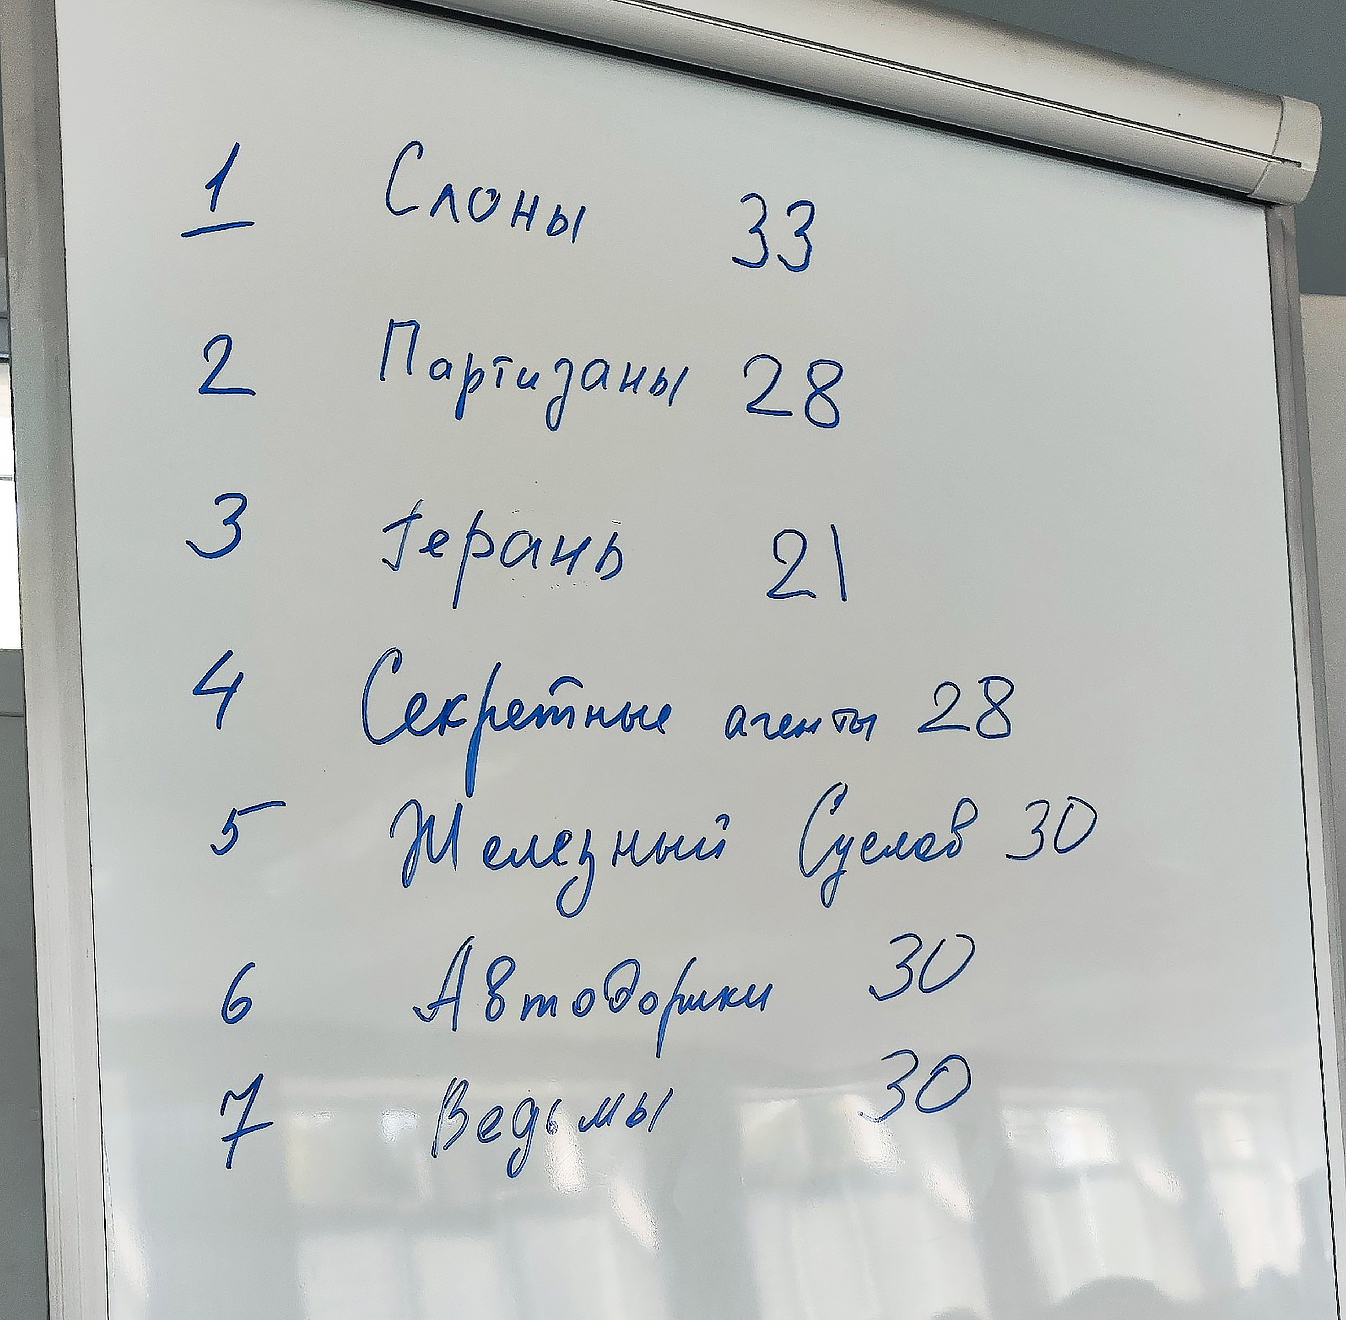 1 Слоны 33
2 Партизаны 28
3 Герань 21
4 Секретные агенты 28
5 Железный Суслов 30
6 Автодоришки 30
7 Ведьмы 30